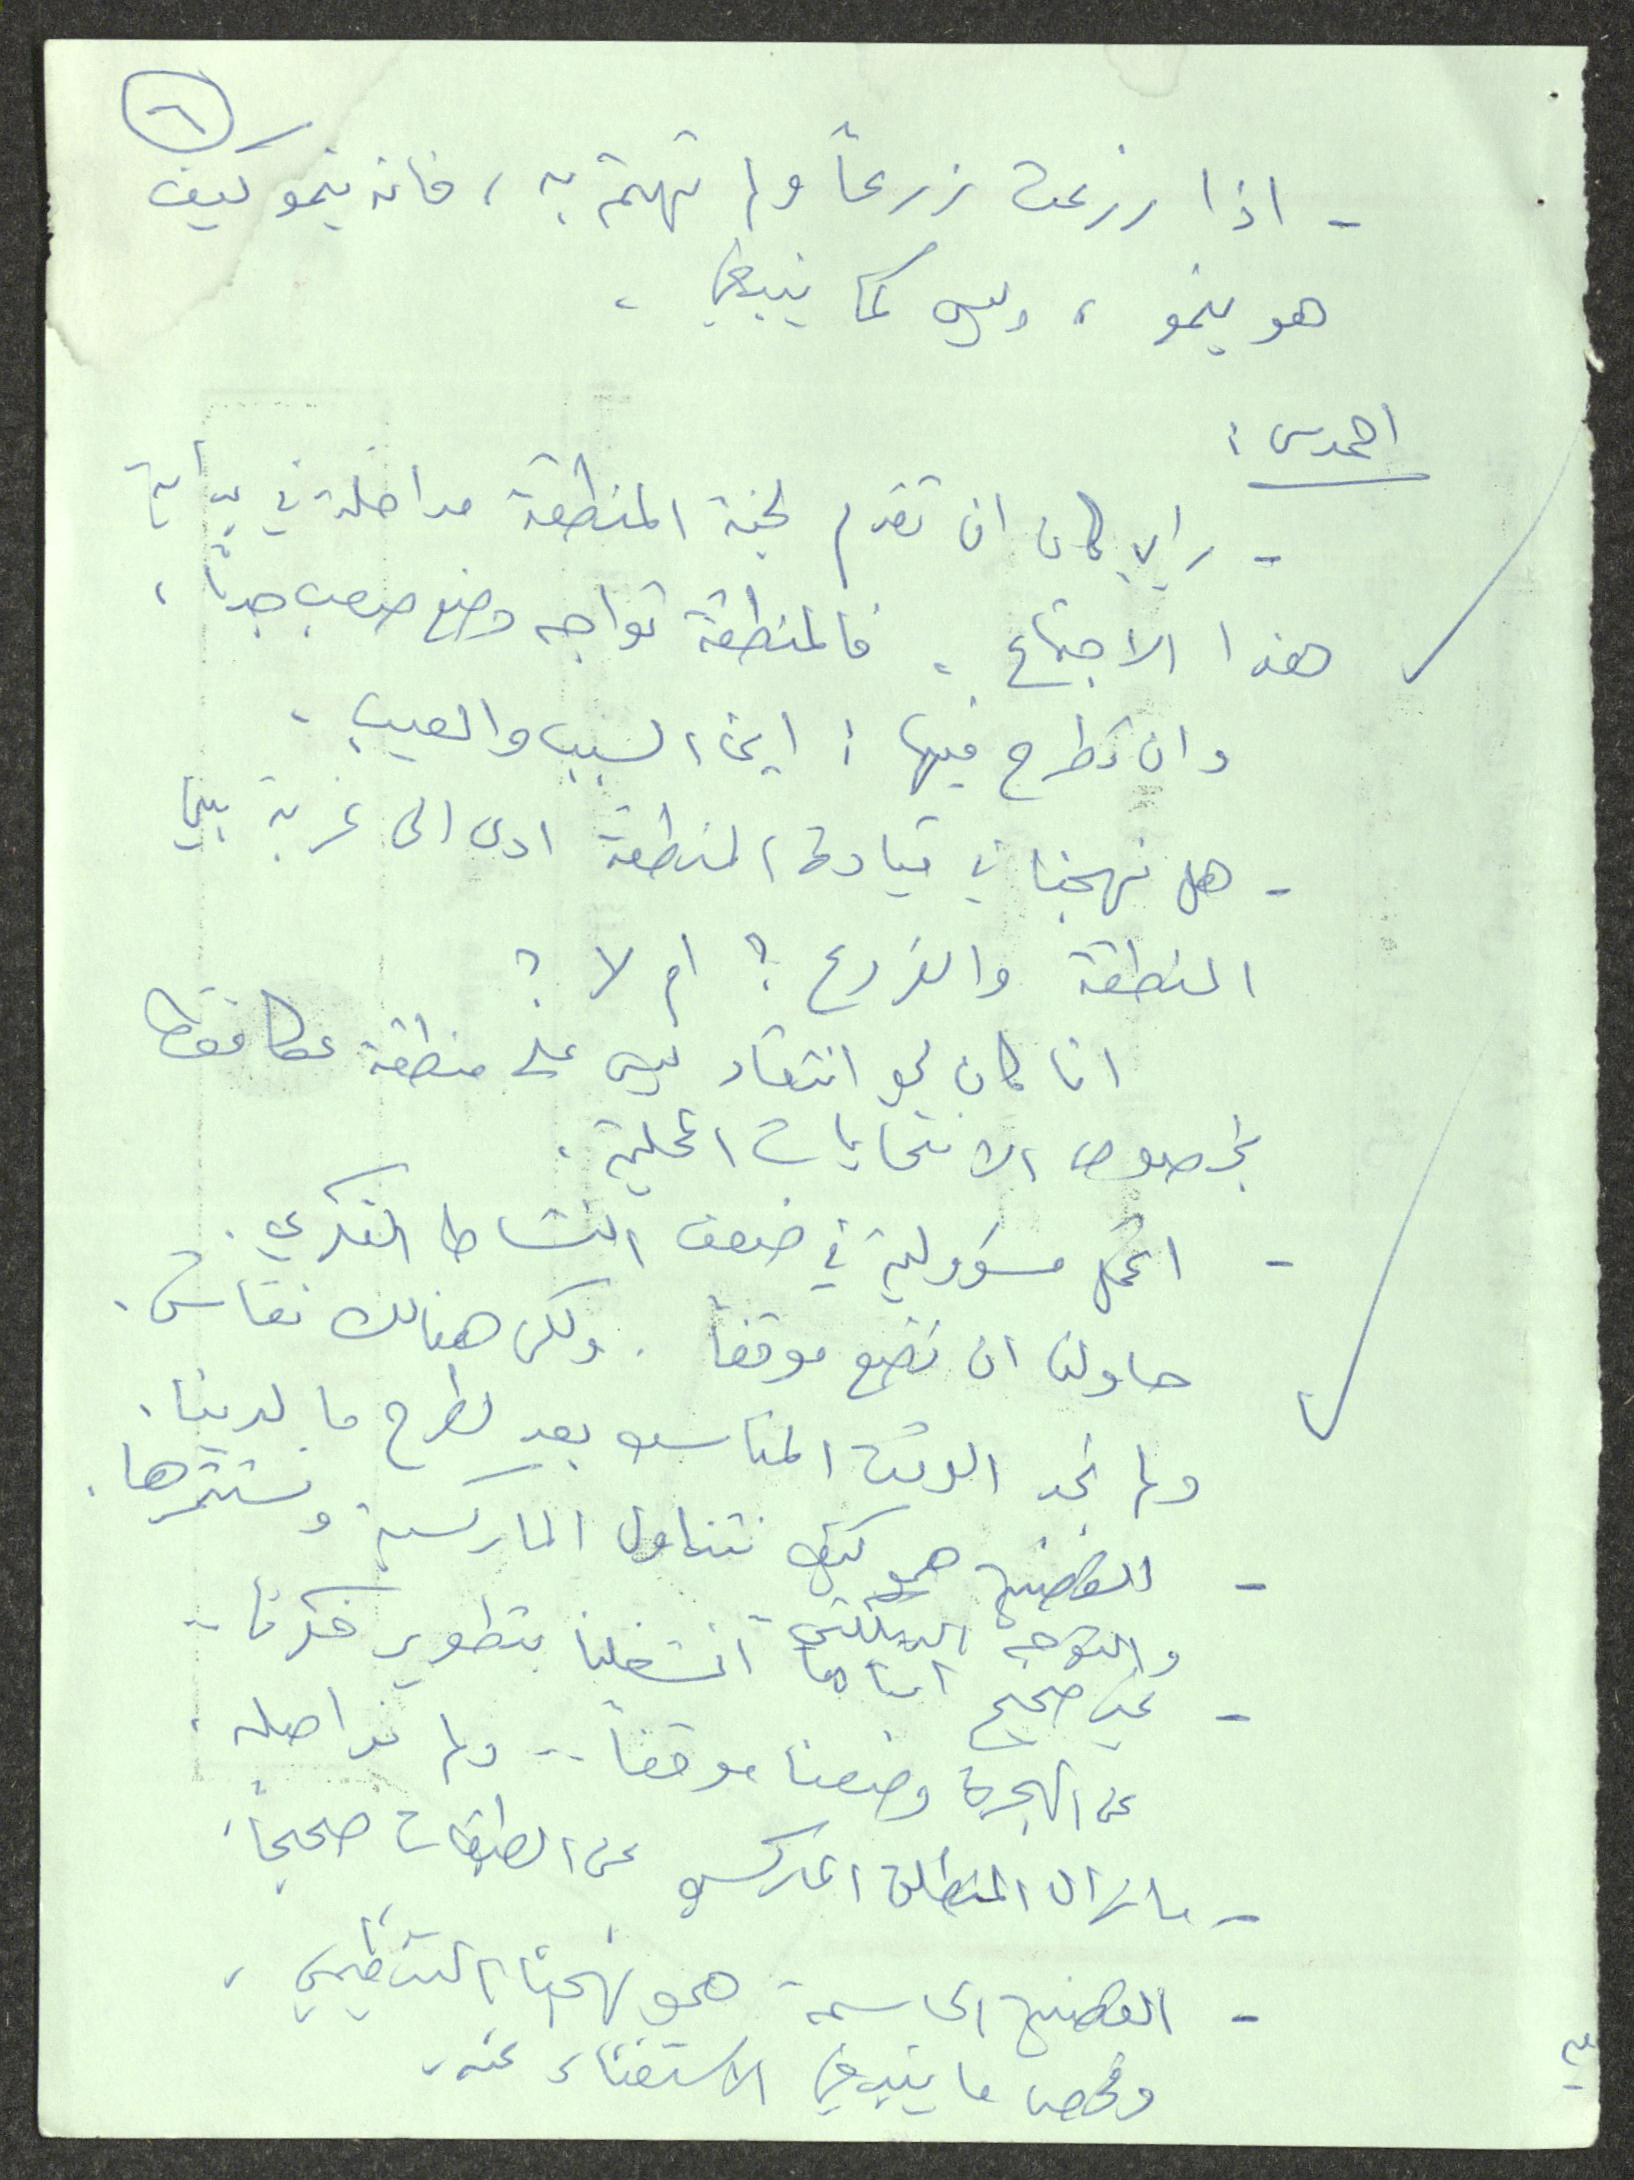 ٦
- اذا زرعت زرعاً ولم تهتم به، فانه ينمو كيف
هو ينمو، وليس كما ينبغي.
احمد س:
- رايي كان ان تقدم لجنة المنطقة مداخلة في بداية
هذا الاجتماع. فالمنطقة تواجه وضع صعب جداً،
وان تطرح فيها: اين السبب والعيب.
- هل نهجنا في قيادة المنطقة ادى الى غربة بين
المنطقة والفروع؟ ام لا؟
انا كان لي انتقاد ليس على منطقة عكا فقط
بخصوص الانتخابات المحلية.
- اتحمل مسؤولية في ضعف النشاط الفكري.
حاولنا ان نضع موقفاً. ولكن هنالك نقاش.
ولم نجد الوقت المناسب بعد لطرح ما لدينا.
- القضية هي كيف نتناول الماركسية ونستثمرها.
والتوجه
- غير صحيح اننا ما انشغلنا بتطوير فكرنا..
عن الهجرة وضعنا موقفاً.. ولم نواصله.
- ما زال المنطلق الماركسي عن الطبقات صحيحاً.
- القضية الحاسمة هي نهجنا التنظيمي،
وفحص ما ينبغي الاستغناء عنه.